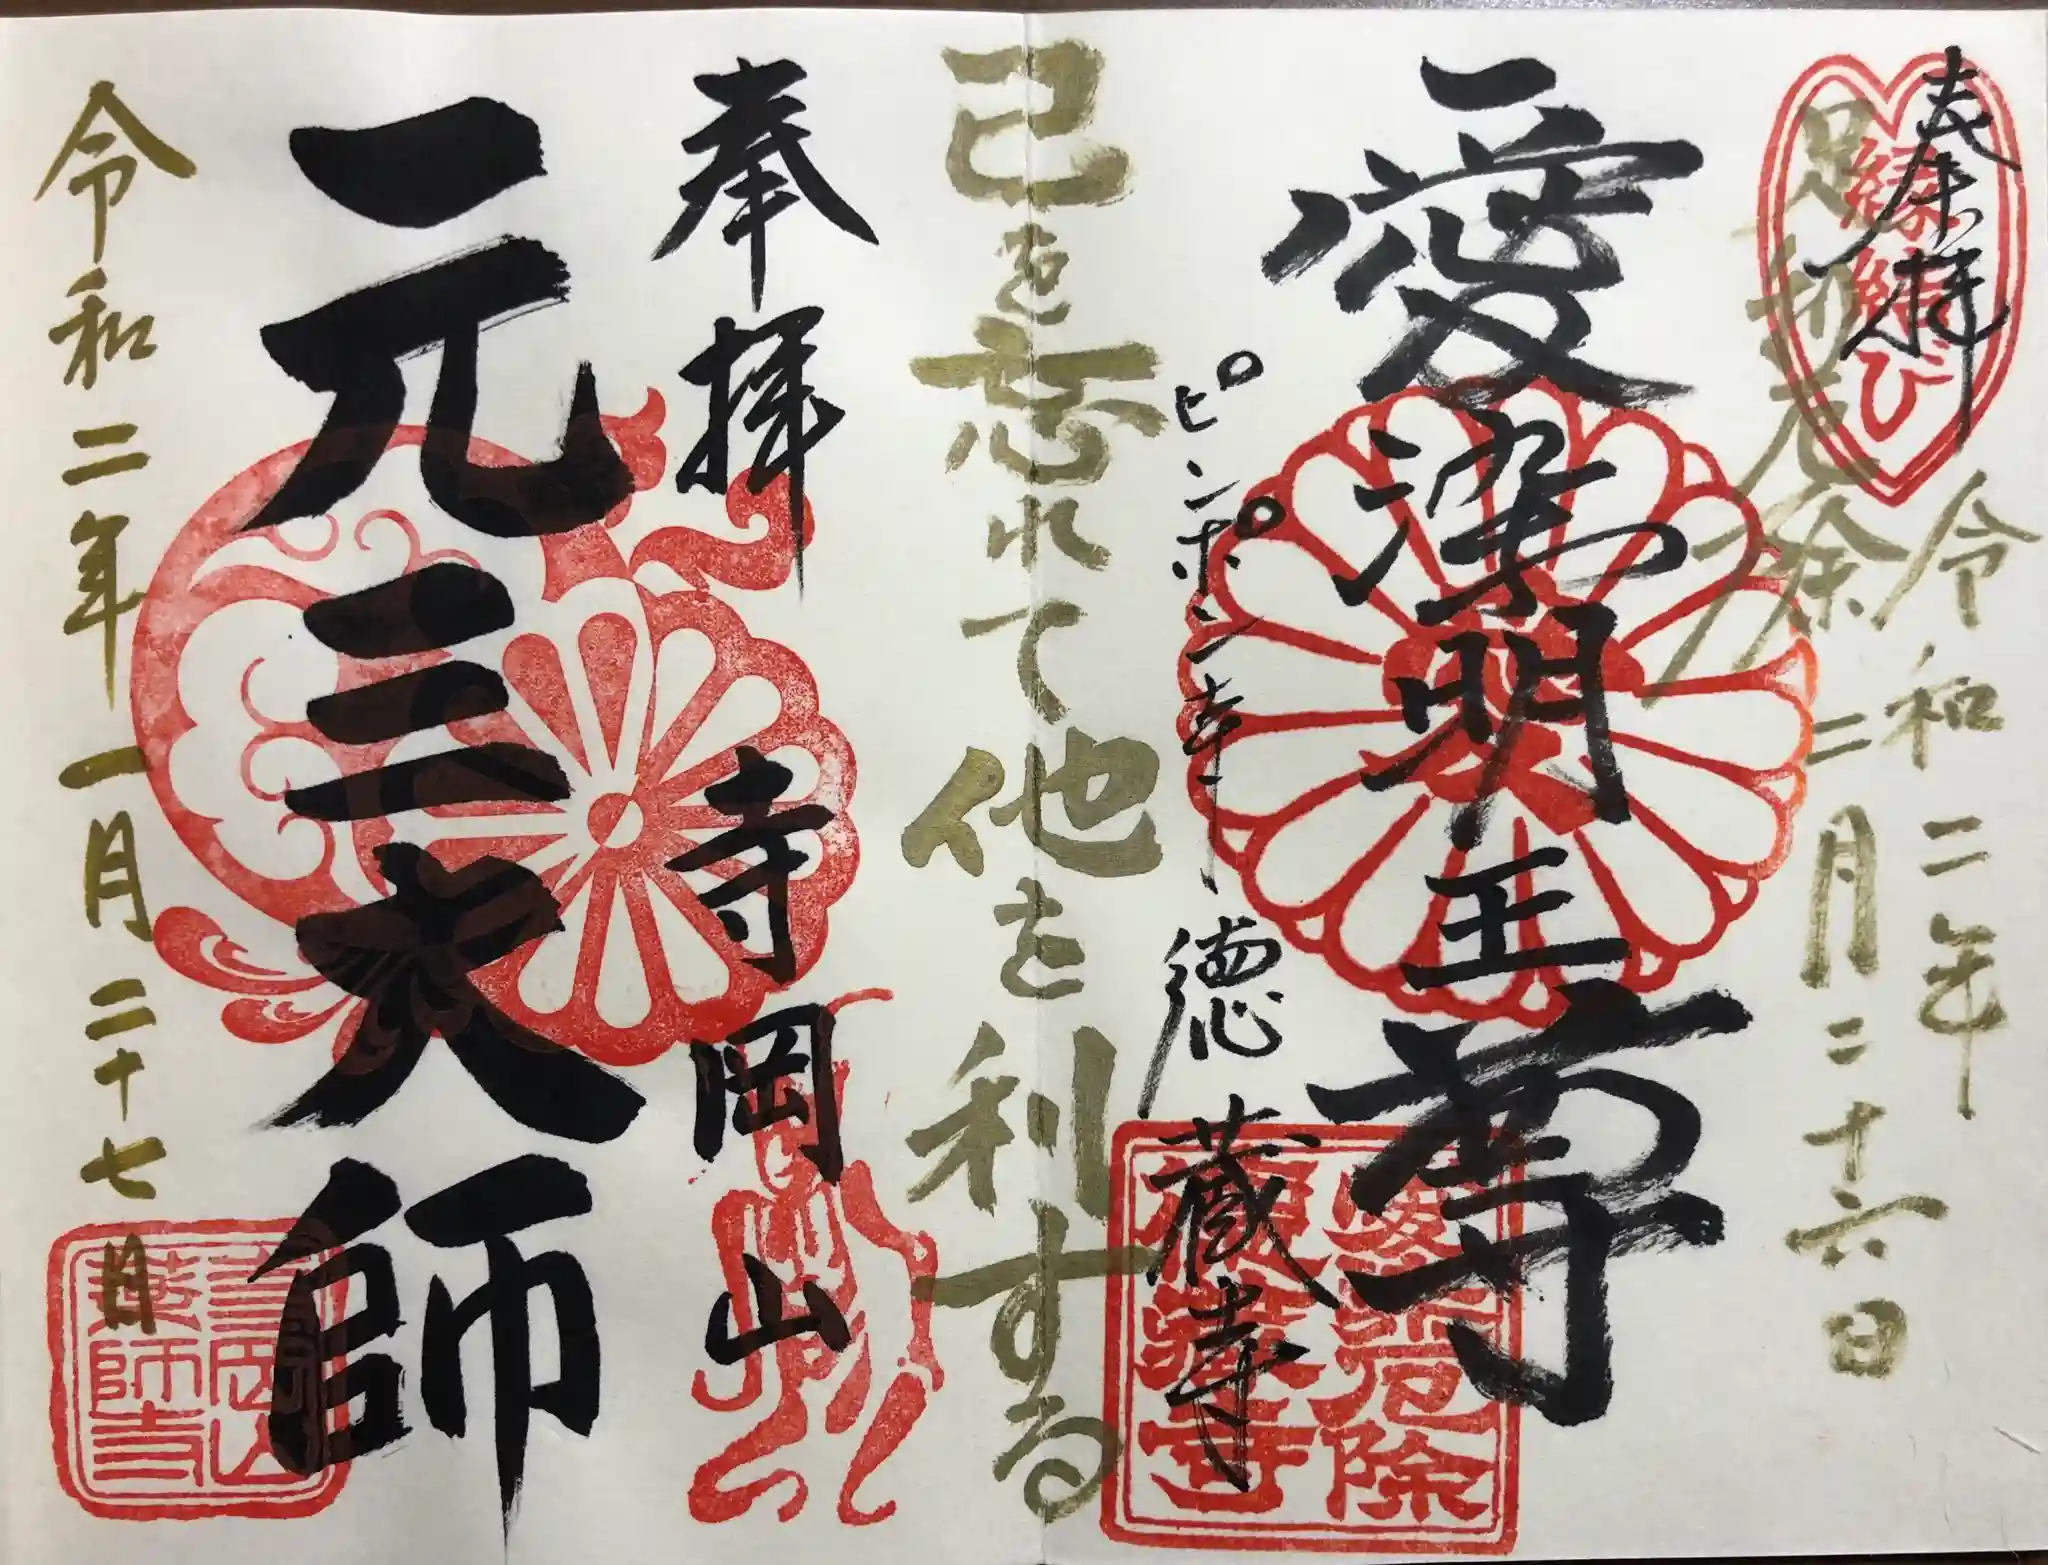 奉拝
縁結び
足利厄除
令和二年
二月二十六日
愛染明王尊
ピンポン寺
徳蔵寺
厄除
徳蔵寺
己を忘れて他を利する
奉拝
寺岡山
元三大師
令和二年一月二十七日
寺岡山
薬師寺